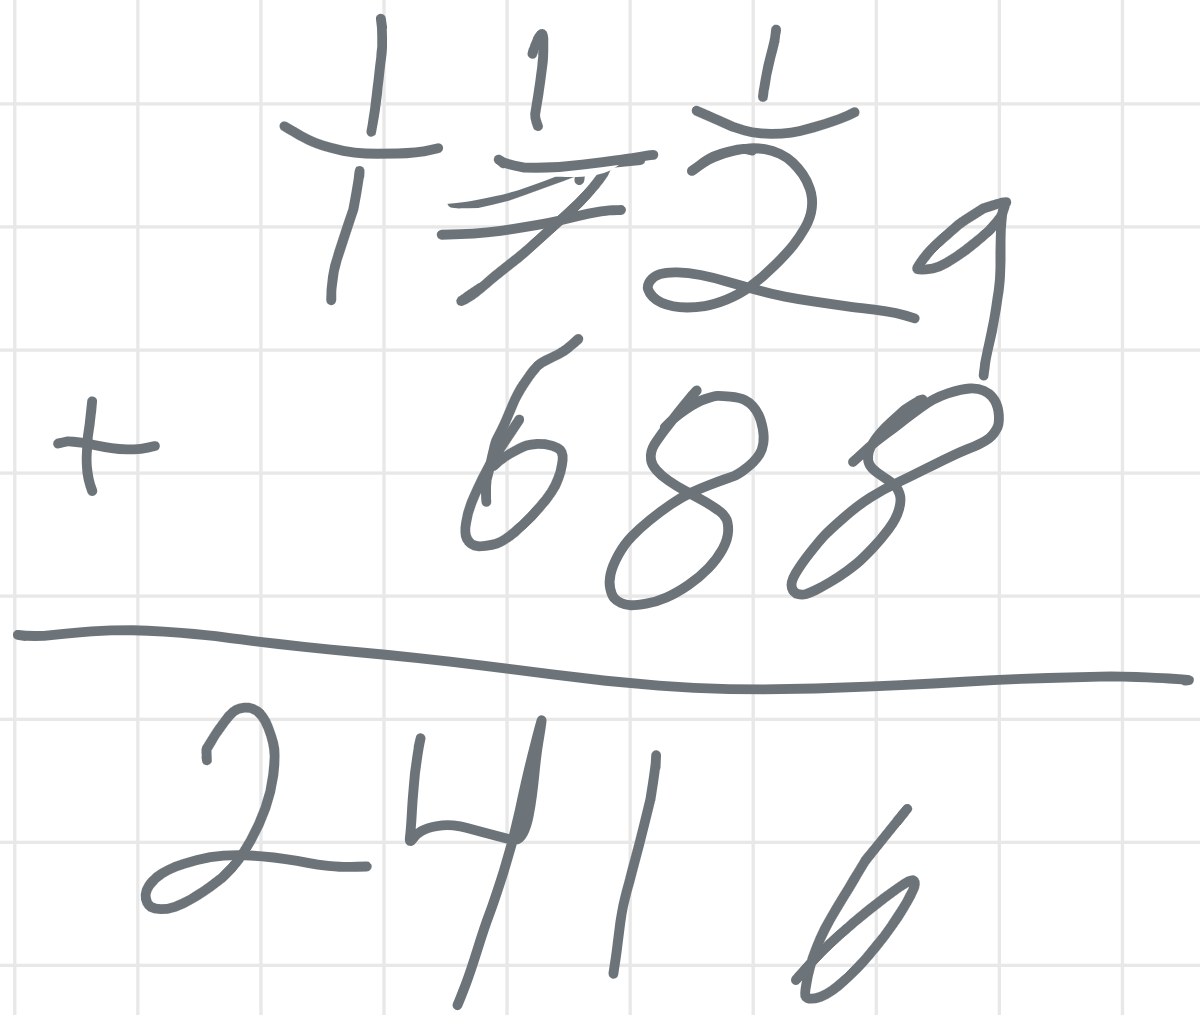 1 1 1
1729
+ 688
2416